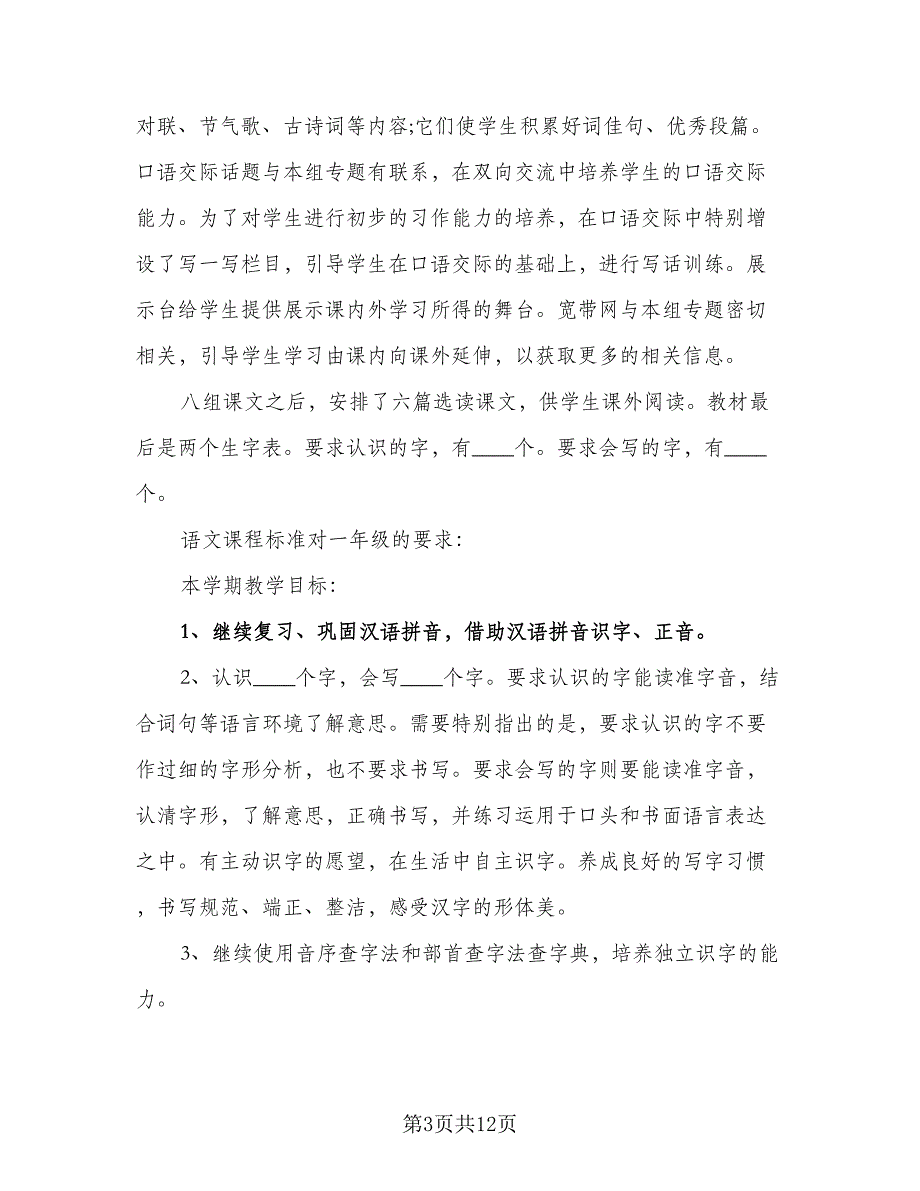 对联、节气歌、古诗词等内容;它们使学生积累好词佳句、优秀段篇。
口语交际话题与本组专题有联系，在双向交流中培养学生的口语交际
能力。为了对学生进行初步的习作能力的培养，在口语交际中特别增
设了写一写栏目，引导学生在口语交际的基础上，进行写话训练。展
示台给学生提供展示课内外学习所得的舞台。宽带网与本组专题密切
相关，引导学生学习由课内向课外延伸，以获取更多的相关信息。
八组课文之后，安排了六篇选读课文，供学生课外阅读。教材最
后是两个生字表。要求认识的字，有____个。要求会写的字，有____
个。
语文课程标准对一年级的要求：
本学期教学目标：
1、继续复习、巩固汉语拼音，借助汉语拼音识字、正音。
2、认识____个字，会写____个字。要求认识的字能读准字音，结
合词句等语言环境了解意思。需要特别指出的是，要求认识的字不要
作过细的字形分析，也不要求书写。要求会写的字则要能读准字音，
认清字形，了解意思，正确书写，并练习运用于口头和书面语言表达
之中。有主动识字的愿望，在生活中自主识字。养成良好的写字习惯
，书写规范、端正、整洁，感受汉字的形体美。
3、继续使用音序查字法和部首查字法查字典，培养独立识字的能
力。
第3页共12页